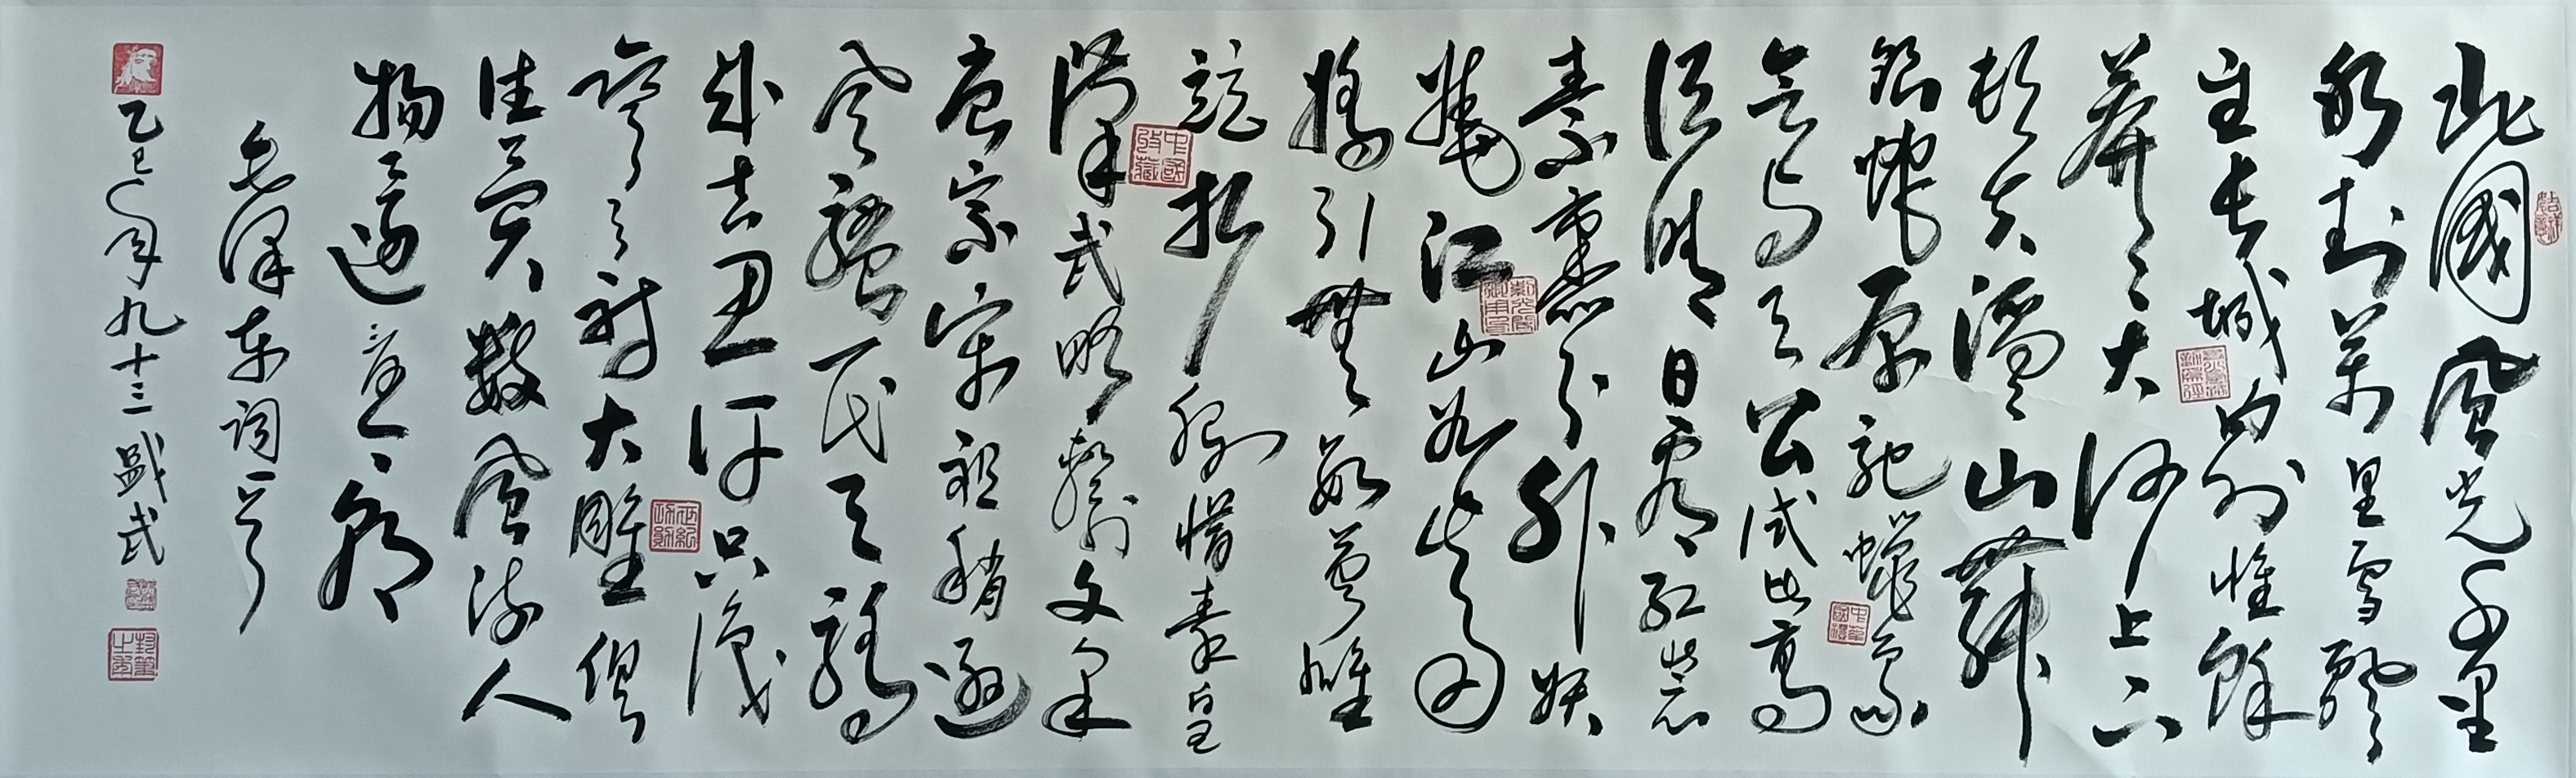 北國風光千里
冰封萬里雪飄
望長城內外惟餘
莽莽大河上下
頓失滔滔山舞
銀蛇原馳蠟象
欲與天公試比高
須晴日看紅裝
素裹分外妖
嬈江山如此多
嬌引無數英雄
競折腰惜秦皇
漢武略輸文采
唐宗宋祖稍遜
風騷一代天驕
成吉思汗只識
彎弓射大雕俱
往矣數風流人
物還看今朝
毛澤東詞一首
乙巳年九十三武
中國收藏
世紀功勛
中華國禮